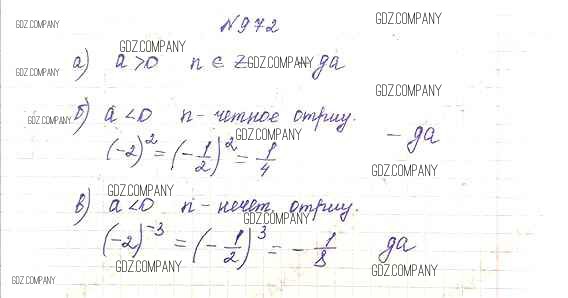 N972
GDZ.COMPANY
GDZ.COMPANY
GDZ.COMPANY
а) a>0 n ∈ Z GDZ.COMPANY - да
GDZ.COMPANY
GDZ.COMPANY
GDZ.COMPANY
б) a<0 n - четное отриц.
GDZ.COMPANY
(-2)^2 = (-1/2)^2 = 1/4 - да
GDZ.COMPANY
GDZ.COMPANY
в) a<0 n - нечет. отриц.
GDZ.COMPANY
(-2)^-3 = (-1/2)^3 = -1/8 да
GDZ.COMPANY
GDZ.COMPANY
GDZ.COMPANY